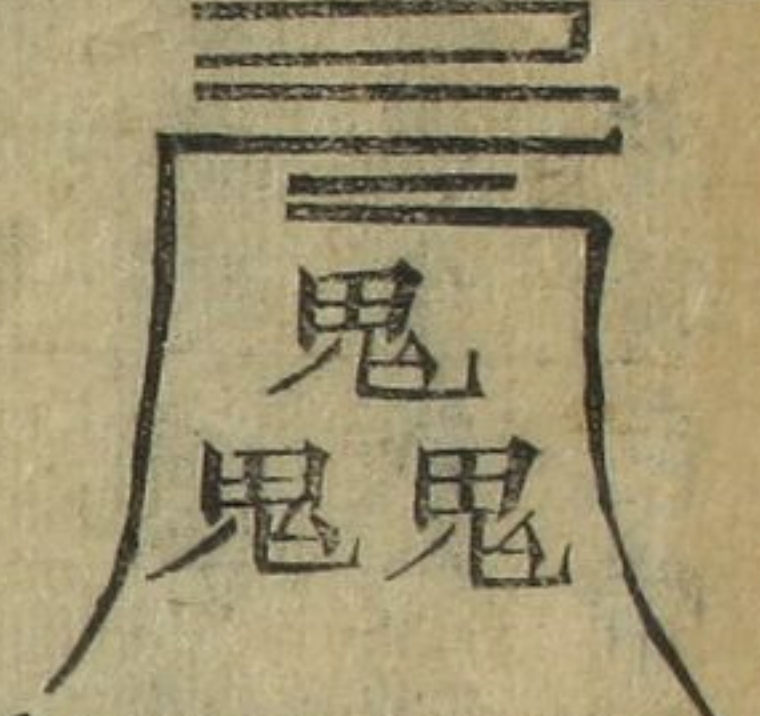 鬼
鬼鬼